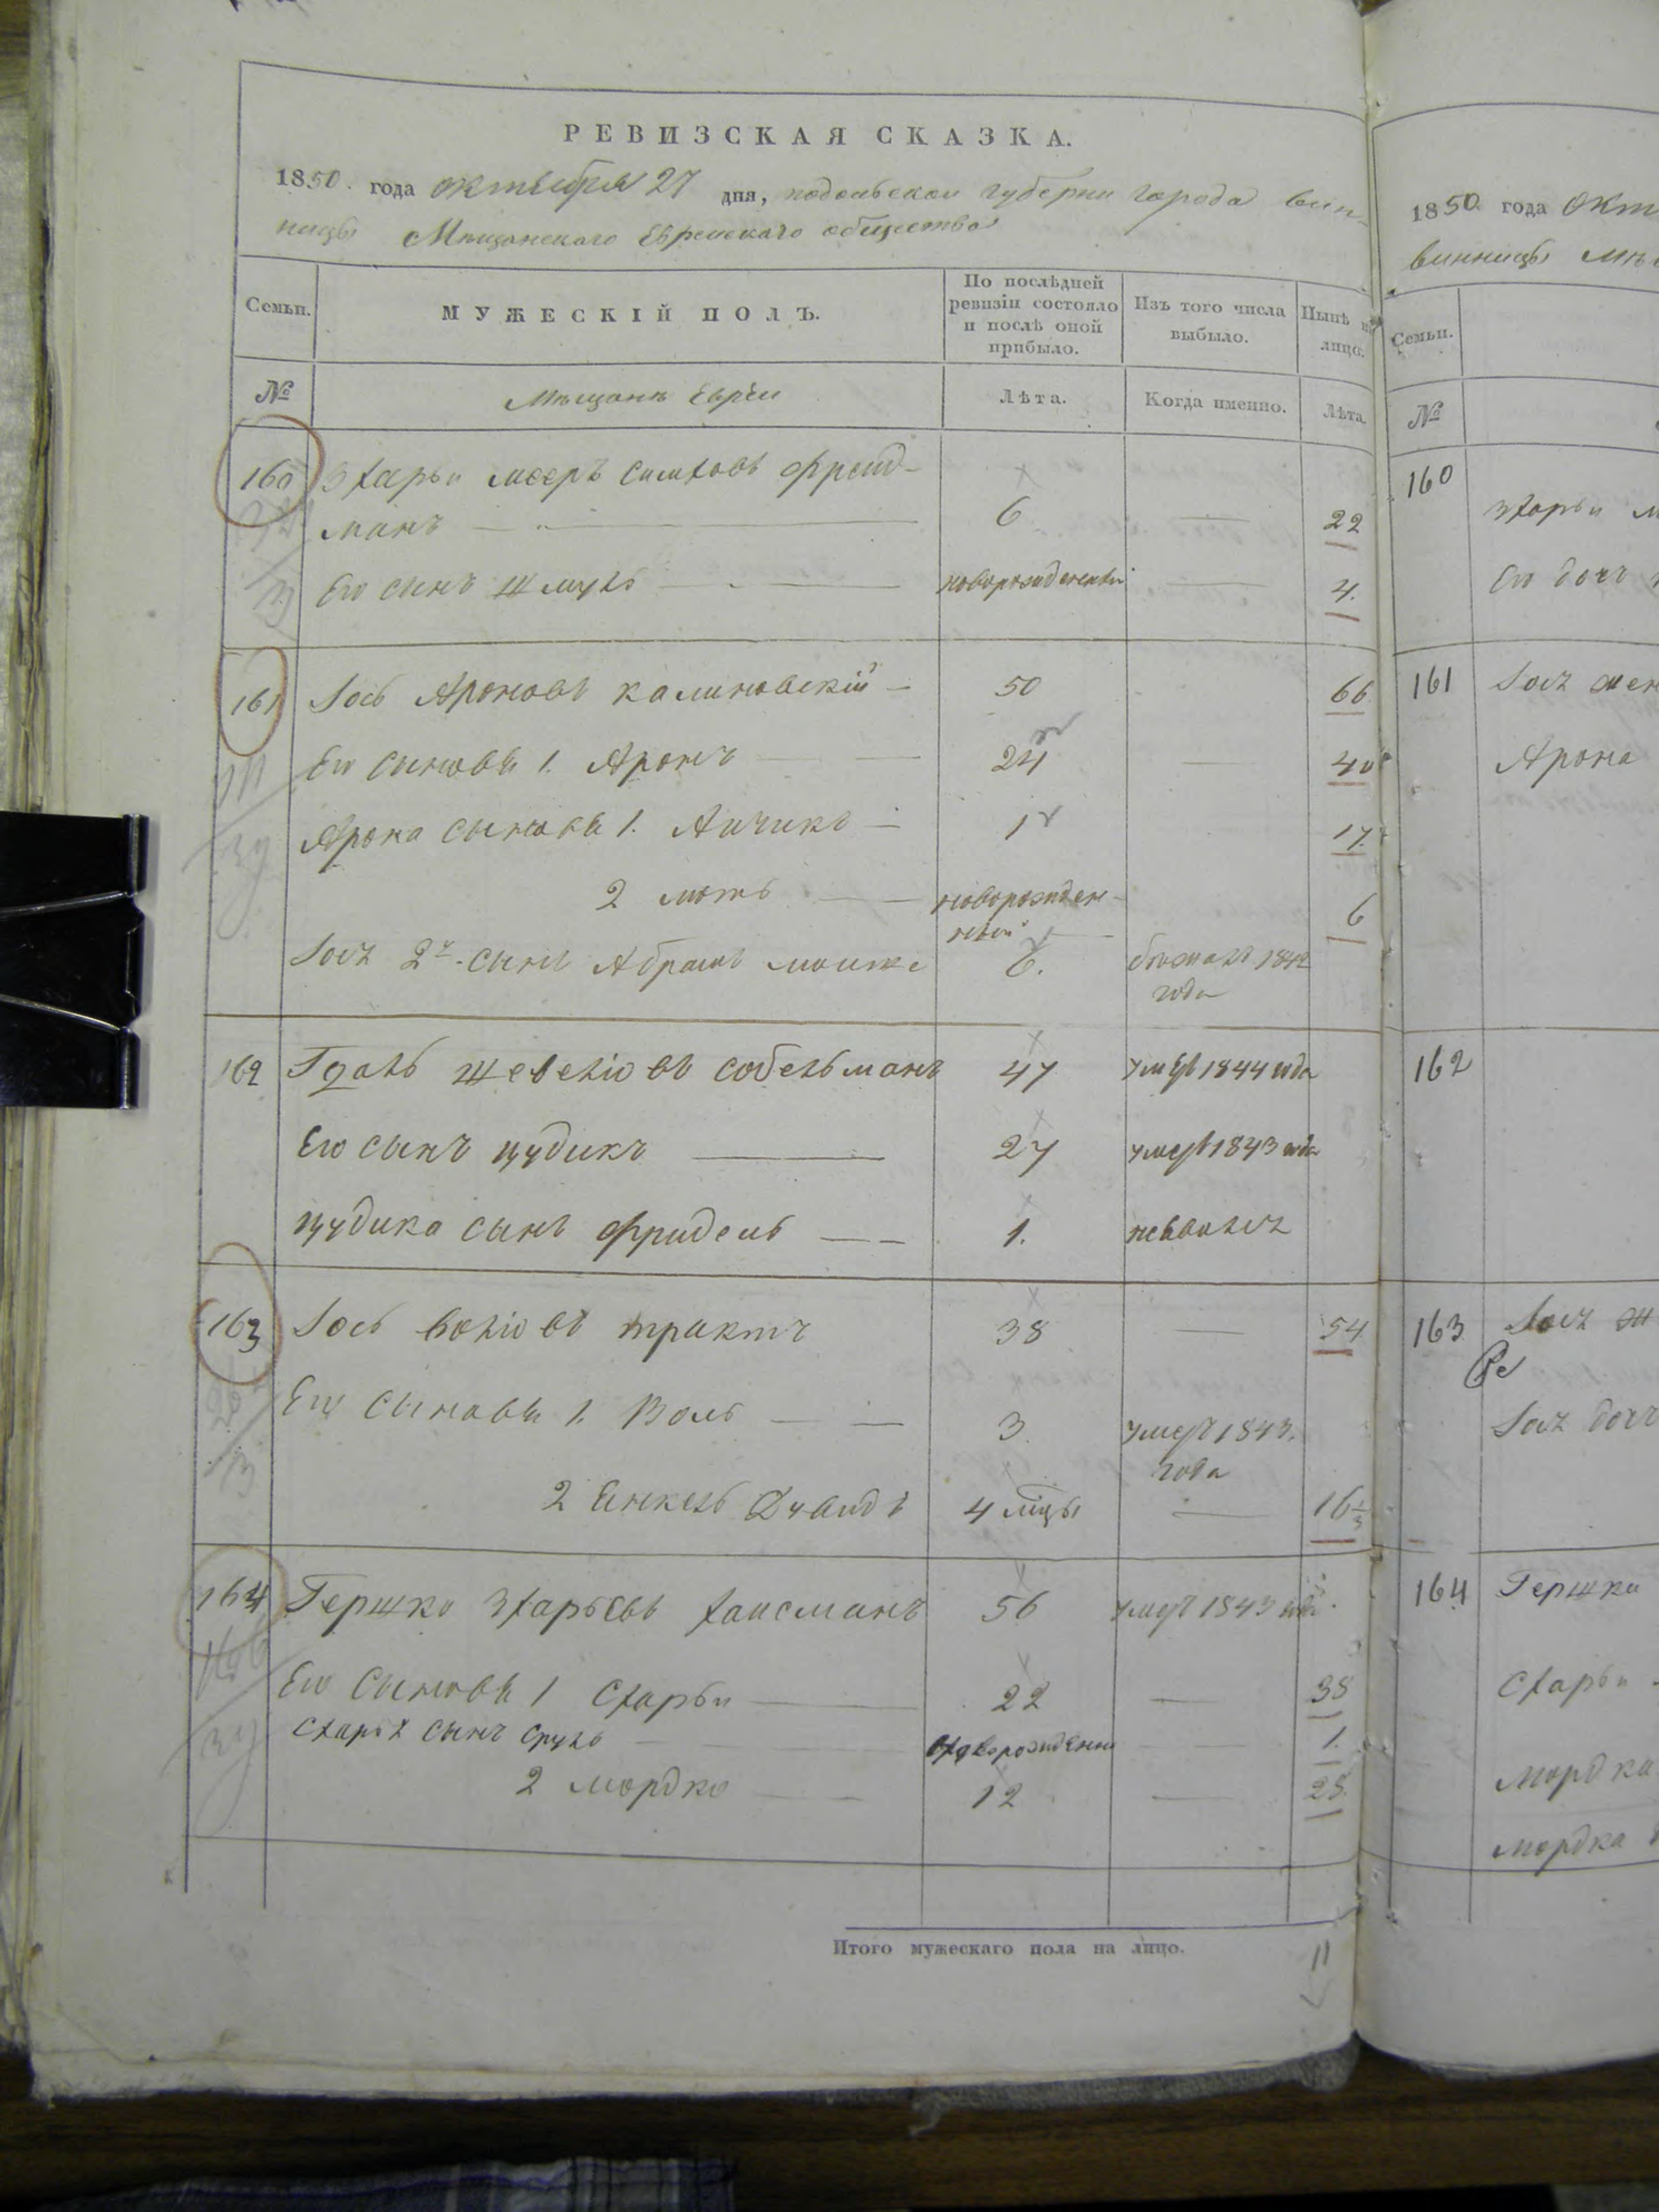 РЕВИЗСКАЯ СКАЗКА.
1850. года октября 27 дня, подольской губернии города вин-
ницы Мещанского Еврейскаго общества
Семьи.
МУЖЕСКІЙ ПОЛЪ.
По послѣдней ревизіи состояло и послѣ оной прибыло.
Изъ того числа выбыло.
Нынѣ на лицо.
№
Мещане Евреи
Лѣта.
Когда именно.
Лѣта.
160 Зхарьи меєръ симховъ фрейд-
манъ 6 22
Его сынъ Шмуль новорожденный 4.
161 Іось Ароновъ калиновскій 50 66
Его сыновья 1. Аронъ 24 40
Арона сыновья 1. Аичикъ 1 17.
2 мотъ новорожден-
ный 6
Іося 2й. сынъ Абрамъ мошко 6. бежалъ 1842
года
162 Гдаль Шевеліовъ собельманъ 47 умеръ 1844 года
Его сынъ цудикъ 27 умеръ 1843 года
цудика сынъ фридель 1. неявился
163 Іось воліовъ трактъ 38 54
Его сыновья 1. Воль 3. умеръ 1843.
года
2 Енкель Дувидъ 4 мцы 16 1/3
164 Гершко Зхарьевъ хаисманъ 56 умеръ 1843 года
Его сыновья 1 Схарьи 22 38
Схарья сынъ Сруль новорожденны 1.
2 мордко 12 28.
Итого мужескаго пола на лицо. 11
1850. года Окт
винницы мѣ
Семьи.
№
160
зхарьи м
Его дочь
161 Іося жен
Арона
162
163 Іося ж
Іося дочь
164 Гершки
Схарьи
Мордка
мордка